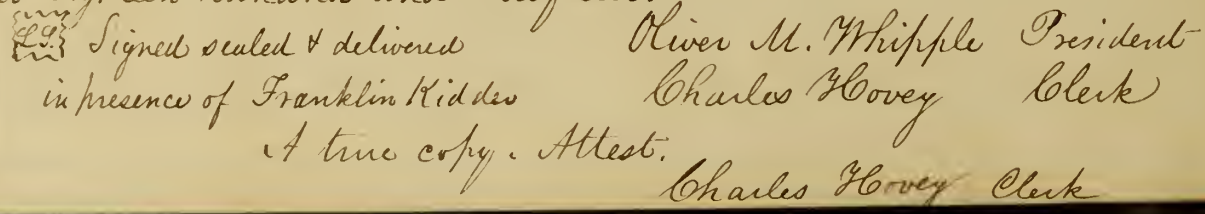 L.S. Signed sealed & delivered Oliver M. Whipple President
in presence of Franklin Kidder Charles Hovey Clerk
A true copy. Attest.
Charles Hovey Clerk